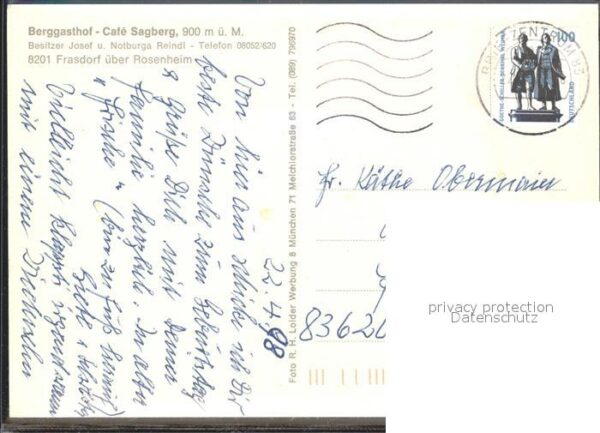 Berggasthof - Café Sagberg, 900 m ü. M.
Besitzer Josef u. Notburga Reindl - Telefon 08052/620
8201 Frasdorf über Rosenheim
22.4.98
Von hier aus schicke ich Dir
beste Wünsche zum Geburtstag
& grüße Dich mit Deiner
Familie herzlich. In alter
Frische (bin zu Fuß herauf)
Vielleicht klappts irgendwann
mit einem
Foto R. H. Loider Werbung 8 München 71 Melchiorstraße 63 - Tel. (089) 796970
BRIEFZENTRUM 83
100
GOETHE-SCHILLER-DENKMAL WEIMAR
DEUTSCHLAND
Fr. Käthe Obermaier
8362
privacy protection
Datenschutz